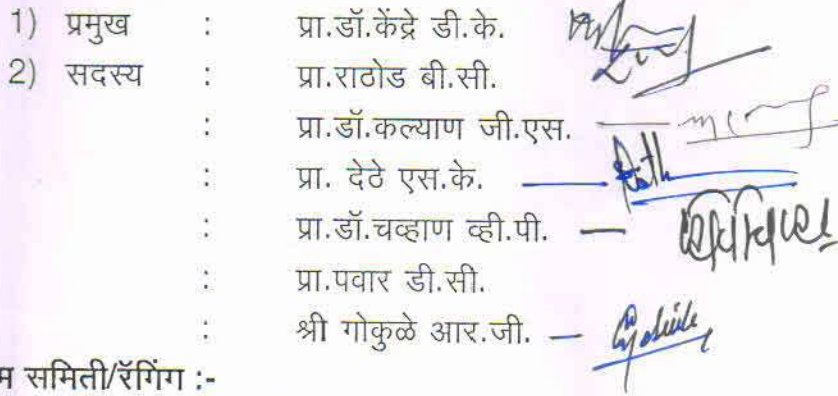 1) प्रमुख : प्रा.डॉ.केंद्रे डी.के.
2) सदस्य : प्रा.राठोड बी.सी.
: प्रा.डॉ.कल्याण जी.एस.
: प्रा. देठे एस.के.
: प्रा.डॉ.चव्हाण व्ही.पी.
: प्रा.पवार डी.सी.
: श्री गोकुळे आर.जी.
समिती/रॅगिंग :-